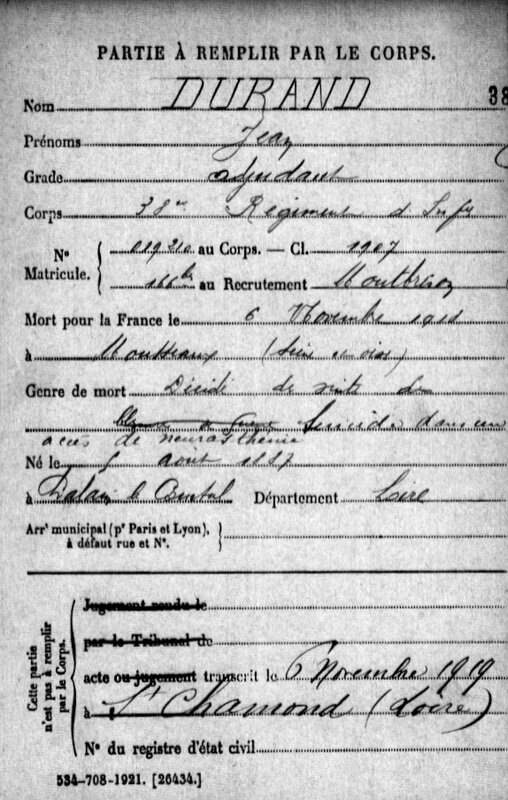 PARTIE À REMPLIR PAR LE CORPS.
Nom DURAND 38
Prénoms Jean
Grade adjudant
Corps 38me Régiment d'Infie
Nº Matricule. 019210 au Corps. — Cl. 1907
166 bis au Recrutement Montbrison
Mort pour la France le 6 Novembre 191
à (Seine et oise)
Genre de mort Décédé de suite de
blessures de guerre Suicide dans un
accès de neurasthénie
Né le 5 août 1887
à le Comtal Département Loire
Arrt municipal (pr Paris et Lyon),
à défaut rue et Nº.
Cette partie n'est pas à remplir par le Corps.
Jugement rendu le
par le Tribunal de
acte ou jugement transcrit le 6 Novembre 1919
à St Chamond (Loire)
Nº du registre d'état civil
534-708-1921. [26434.]